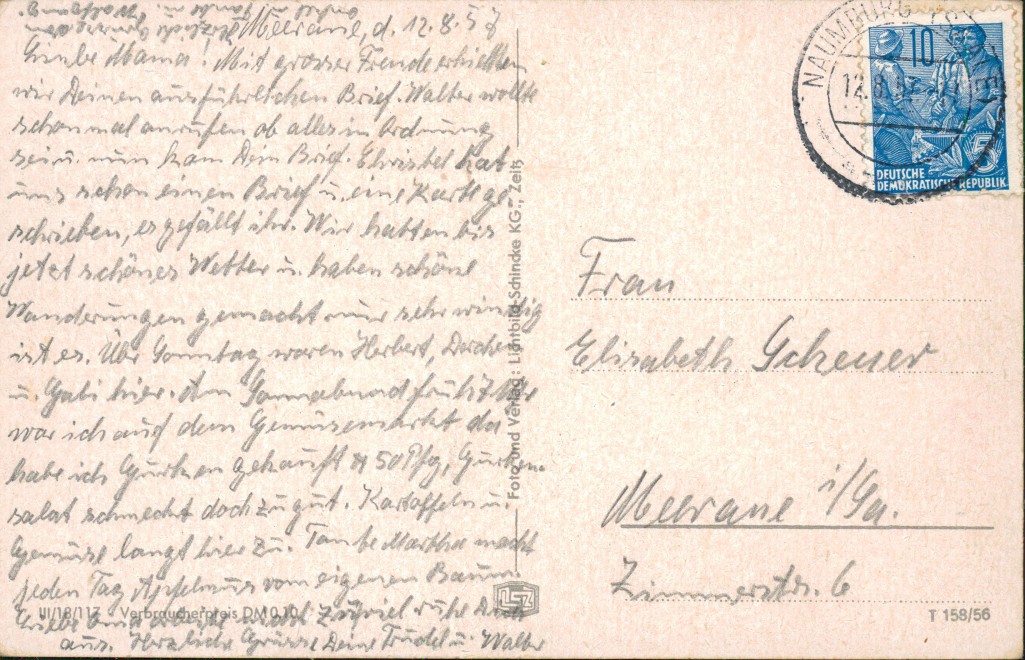 Meerane, d. 12.8.57
Liebe Mama. Mit grosser Freude erhielten
wir Deinen ausführlichen Brief. Walter wollte
schon mal anrufen ob alles in Ordnung
sei u. nun kam Dein Brief. Christel hat
uns schon einen Brief u. eine Karte ge-
schrieben, es gefällt ihr. Wir hatten bis
jetzt schönes Wetter u. haben schöne
Wanderungen gemacht nur sehr windig
ist es. Über Sonntag waren Herbert,
u. Gabi hier. Am Sonnabend früh 7 Uhr
war ich auf dem Gemüsemarkt da
habe ich Gurken gekauft 50 Pfg, Gurken-
salat schmeckt doch zu gut. Kartoffeln u.
Gemüse langt hier zu. Tante Martha macht
jeden Tag Apfelmus vom eigenen Baum.
Liebe zuviel ruhe Dich
aus. Herzliche Grüsse Deine Trudel u. Walter
III/18/117 Verbraucherpreis DM 0,10
Foto und Verlag: Lichtbild-Schincke KG., Zeitz
LSZ
NAUMBURG (SAALE)
12.8.57
10
5
DEUTSCHE
DEMOKRATISCHE REPUBLIK
Frau
Elisabeth Scheuer
Meerane i/Sa.
Zimmerstr. 6
T 158/56